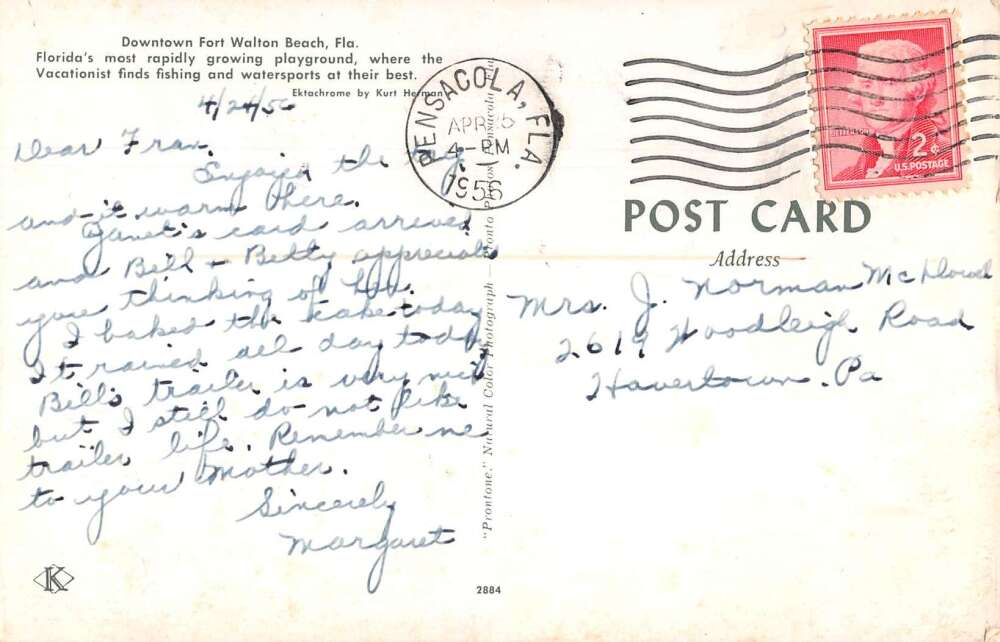 Downtown Fort Walton Beach, Fla.
Florida's most rapidly growing playground, where the
Vacationist finds fishing and watersports at their best.
Ektachrome by Kurt Herman
4/24/56
Dear Fran,
Enjoyed the
and it warm there.
Janet's card arrived
and Bill + Betty appreciate
your thinking of her.
I baked the cake today
It rained all day today
Bill's trailer is very nice
but I still do not like
trailer life. Remember me
to your Mother.
Sincerely
Margaret
K
2884
"Prontone." Natural Color Photograph
PENSACOLA, FLA.
APR
4-PM
1956
2¢
U.S. POSTAGE
POST CARD
Address
Mrs. J. Norman
2619 Woodleigh Road
Havertown. Pa